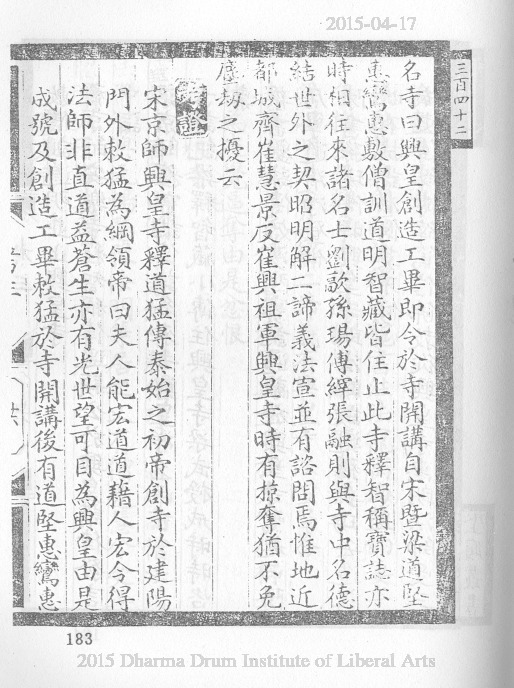 2015-04-17
三百四十二
名寺曰興皇創造工畢即令於寺開講自宋暨梁道堅
惠鸞惠敷僧訓道明智藏皆住止此寺釋智稱寶誌亦
時相往來諸名士劉歊孫瑒傅縡張融則與寺中名德
結世外之契昭明解二諦義法宣並有諮問焉惟地近
都城齊崔慧景反崔興祖軍興皇寺時有掠奪猶不免
塵劫之擾云
考證
宋京師興皇寺釋道猛傳泰始之初帝創寺於建陽
門外敕猛為綱領帝曰夫人能宏道道藉人宏今得
法師非直道益蒼生亦有光世望可目為興皇由是
成號及創造工畢敕猛於寺開講後有道堅惠鸞惠
183
2015 Dharma Drum Institute of Liberal Arts